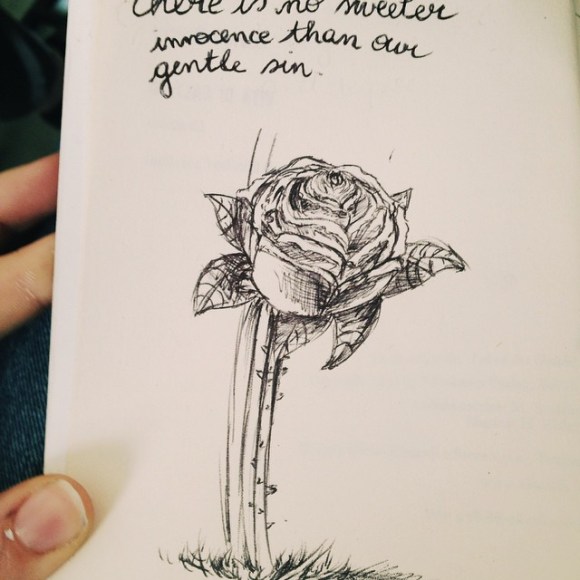 there is no sweeter
innocence than our
gentle sin.